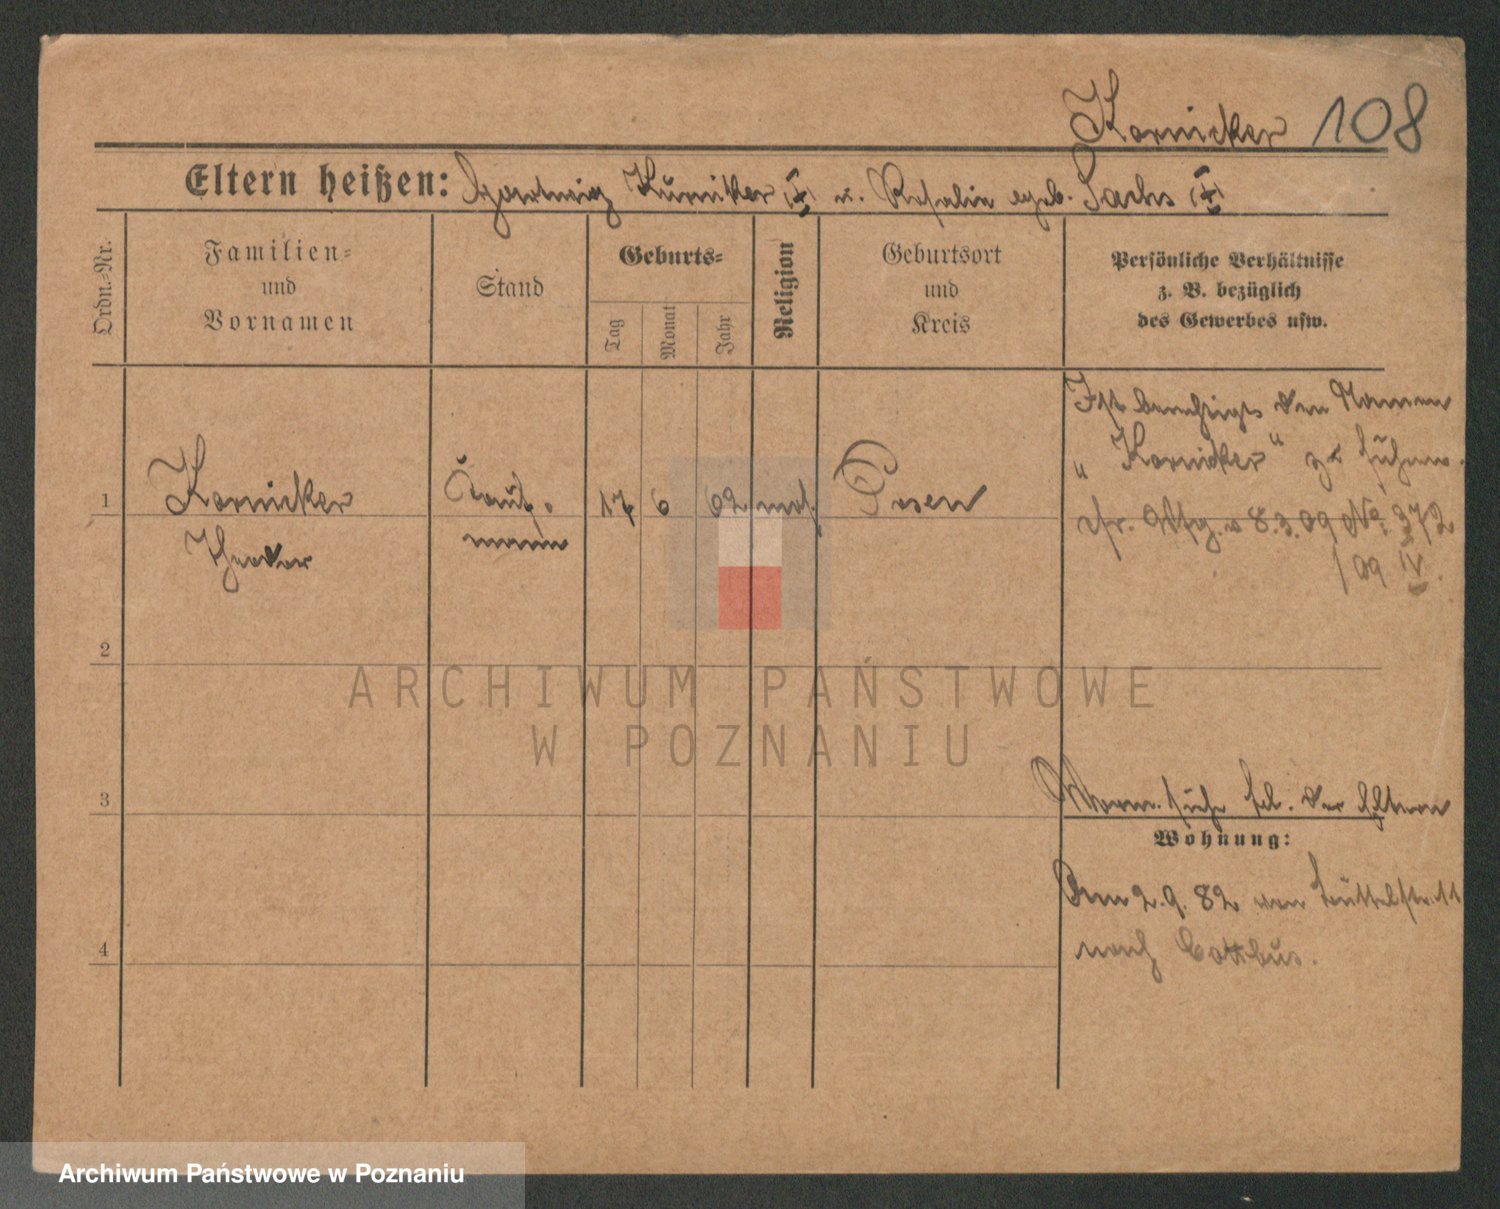 Kornicker 108
Eltern heißen: Hartwig Kurniker (†) u. Rosalie geb. Sachs (†)
Ordn.-Nr.
Familien-
und
Vornamen
Stand
Geburts-
Tag
Monat
Jahr
Religion
Geburtsort
und
Kreis
Persönliche Verhältnisse
z. B. bezüglich
des Gewerbes usw.
1
Kornicker
Theodor
Kauf-
mann
17
6
62
mos.
Posen
Ist berechtigt den Namen
„Kornicker“ zu führen.
cfr. Vfg. v. 8.3.09 No. 372
/09 IV.
2
3
4
siehe bei der Eltern
Wohnung:
Am 2.9.82 von 11
nach Cottbus.
ARCHIWUM PAŃSTWOWE
W POZNANIU
Archiwum Państwowe w Poznaniu